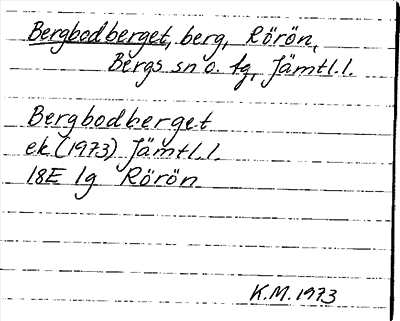 Bergbodberget, berg, Rörön,
Bergs sn o. tg, Jämtl.l.
Bergbodberget
ek (1973) Jämtl.l.
18E 1g Rörön
K.M. 1973